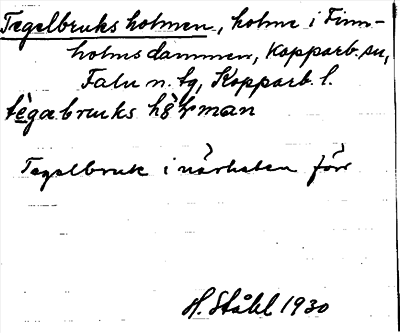 Tegelbruksholmen, holme i Finn-
holmsdammen, Kopparb. sn,
Falu n. tg, Kopparb. l.
tègabruks hòlman
Tegelbruk i närheten förr
H. Ståhl 1930